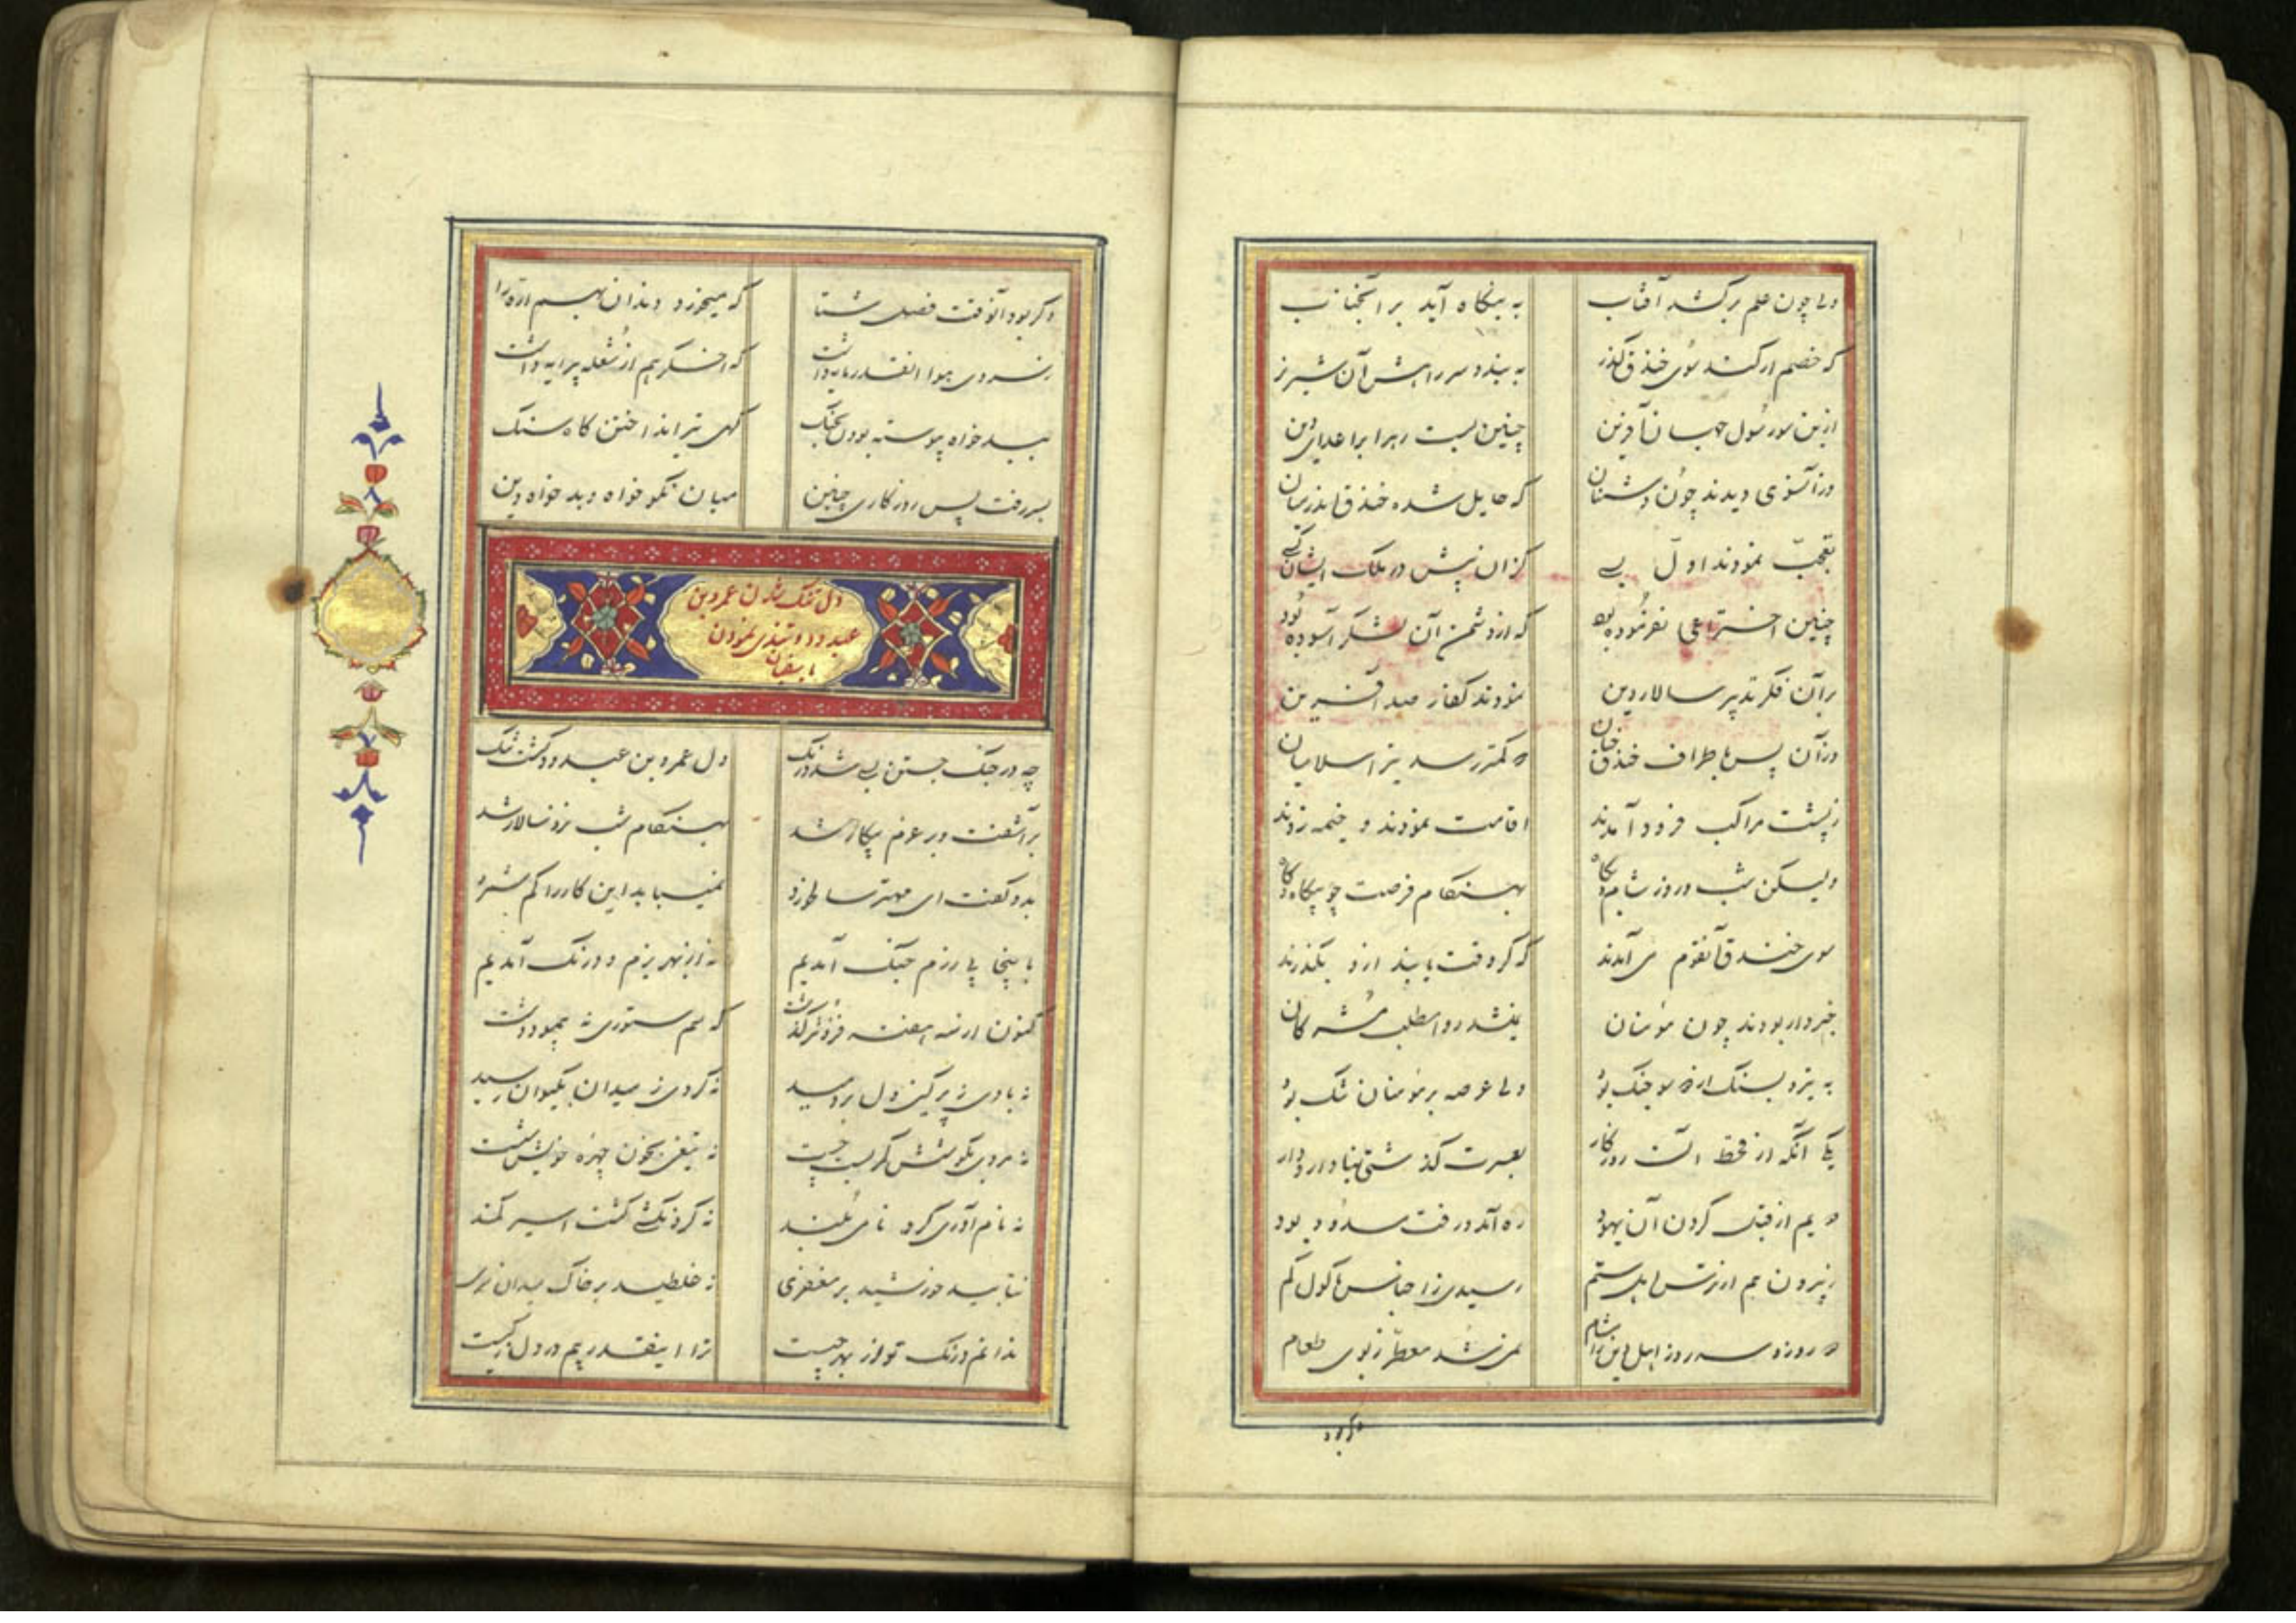 ولی چون علم برکشد آفتاب به بنگاه آید بر آنجناب
که خصم ار کند سوی خندق گذر به بندد سر راهش آن شیر نر
ازین سو رسول جهان آفرین چنین بست ره را بر اعدای دین
وز آنسوی دیدند چون دشمنان که حایل شده خندق اندر میان
تعجب نمودند اول بسی کزان پیش در ملک ایشان کسی
چنین اختراعی نفرموده بود که از دشمن آن لشکر آسوده بود
بر آن فکر و تدبیر سالار دین نمودند کفار صد آفرین
وز آن پس باطراف خندق چنان که کمتر رسد تیر اسلامیان
ز پشت مراکب فرود آمدند اقامت نمودند و خیمه زدند
ولیکن شب و روز شام و پگاه بهنگام فرصت چو بیگاه و گاه
سوی خندق آنقوم می آمدند که گر وقت یابند ازو بگذرند
خبردار بودند چون مؤمنان نمیشد روا مطلب مشرکان
به تیر و بسنگ از دو سو جنگ بود ولی عرصه بر مؤمنان تنگ بود
یکی آنکه از قحط آن روزگار بعسرت گذشتی بنادار و دار
دویم از قبل کردن آن یهود ره آمد و رفت مسدود بود
ز بیرون هم از ترس اهل ستم رسیدی ز اجناس ماکول کم
دو روزه سه روز اهل دین را مشام نمی شد معطر ز بوی طعام
و کر بود
و کر بود آنوقت فصل شتا که میخورد دندان بهم اژدها
ز سردی هوا آنقدر مایه داشت که اخگر هم از شعله پیرایه داشت
ببد خواه پیوسته بودن بجنگ گهی تیر انداختن گاه سنگ
بسر رفت پس روزگاری چنین میان نکو خواه و بد خواه دین
دل تنک شدن عمرو بن
عبدود و تندی نمودن
با سفیان
چو در جنک جستن بسی شد درنک دل عمرو بن عبدود گشت تنک
بر آشفت و بر عزم پیکار شد بهنگام شب نزد سالار شد
بدو گفت ای مهتر سالخورد نمیباید این کار را کم شمرد
باینجا پی رزم جنگ آمدیم نه از بهر بزم و درنگ آمدیم
کنون از سه هفته فزونتر گذشت که سم ستوری نه پیمود دشت
نه بادی ز پر کین دل بر دمید نه گردی ز میدان بکیوان رسید
نه مردی بکوشش کمر بست چست نه تیغی بخون چهره خویش شست
نه نام آوری کرد نامی بلند نه گردنکشی گشت اسیر کمند
نتابید خورشید بر مغفری نه غلطید بر خاک میدان سری
ندانم درنگ تو از بهر چیست ترا اینقدر بیم در دل ز کیست